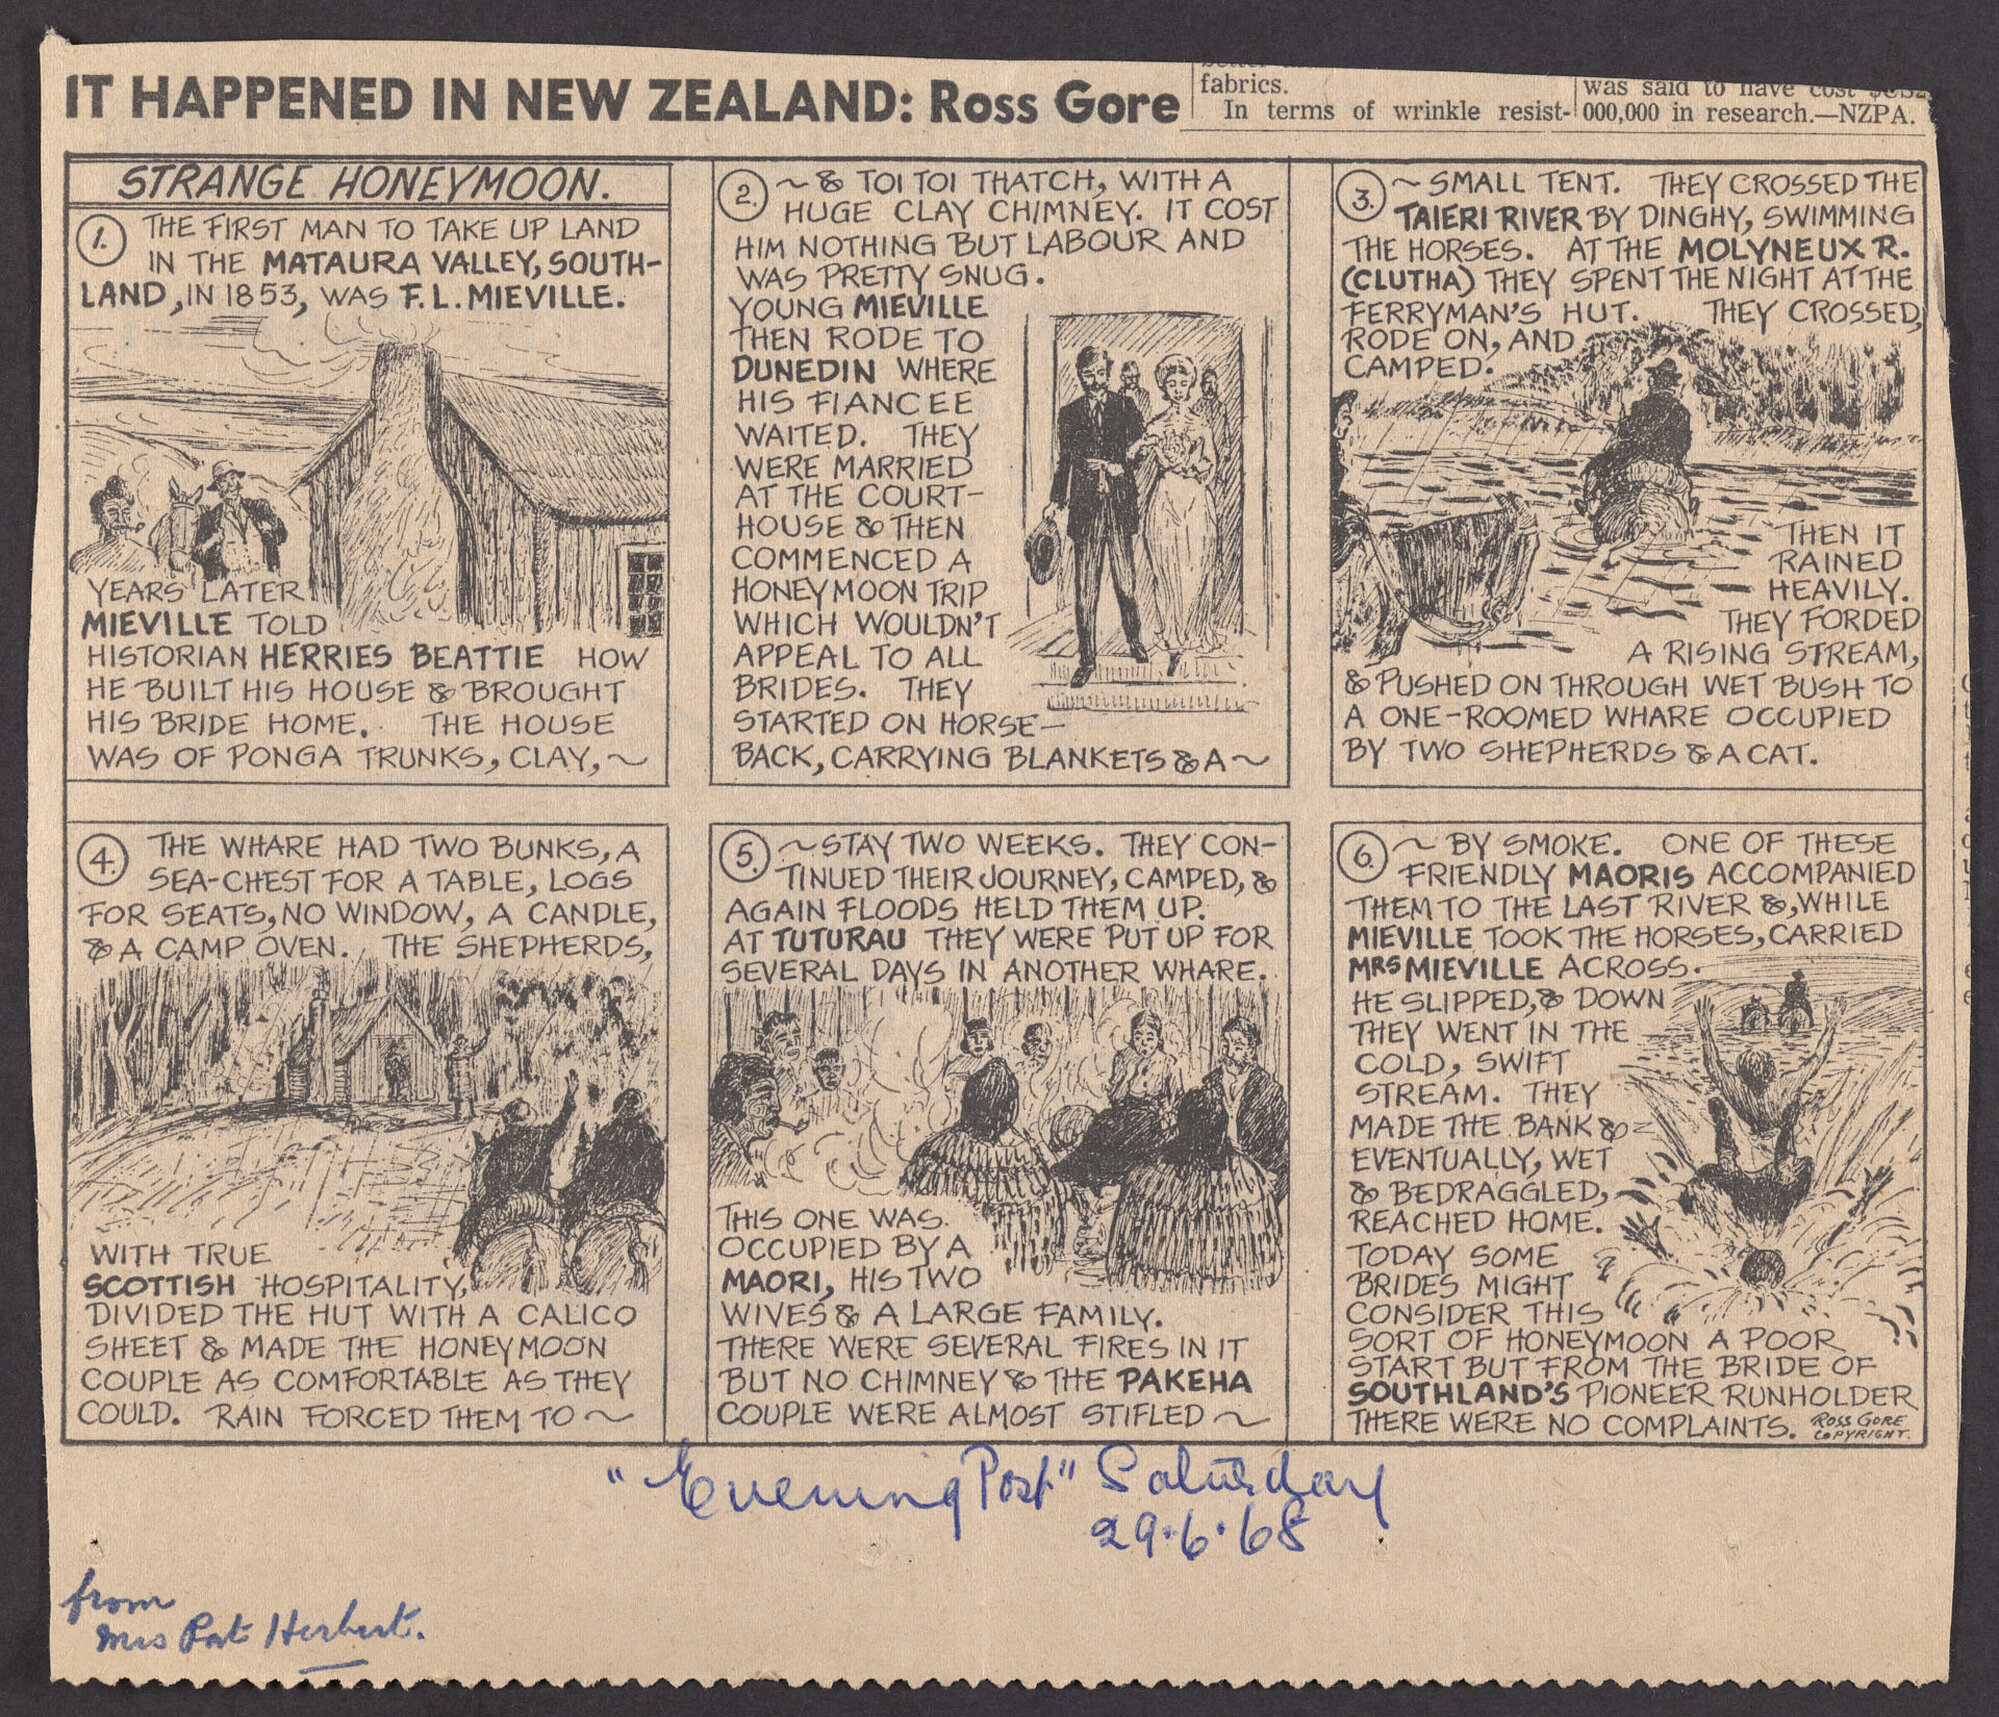 IT HAPPENED IN NEW ZEALAND: Ross Gore
fabrics.
In terms of wrinkle resist-
was said to have cost
000,000 in research.—NZPA.
STRANGE HONEYMOON.
1. THE FIRST MAN TO TAKE UP LAND
IN THE MATAURA VALLEY, SOUTH-
LAND, IN 1853, WAS F.L. MIEVILLE.
YEARS LATER
MIEVILLE TOLD
HISTORIAN HERRIES BEATTIE HOW
HE BUILT HIS HOUSE & BROUGHT
HIS BRIDE HOME. THE HOUSE
WAS OF PONGA TRUNKS, CLAY, ~
2. ~ & TOI TOI THATCH, WITH A
HUGE CLAY CHIMNEY. IT COST
HIM NOTHING BUT LABOUR AND
WAS PRETTY SNUG.
YOUNG MIEVILLE
THEN RODE TO
DUNEDIN WHERE
HIS FIANCEE
WAITED. THEY
WERE MARRIED
AT THE COURT-
HOUSE & THEN
COMMENCED A
HONEYMOON TRIP
WHICH WOULDN'T
APPEAL TO ALL
BRIDES. THEY
STARTED ON HORSE-
BACK, CARRYING BLANKETS & A ~
3. ~ SMALL TENT. THEY CROSSED THE
TAIERI RIVER BY DINGHY, SWIMMING
THE HORSES. AT THE MOLYNEUX R.
(CLUTHA) THEY SPENT THE NIGHT AT THE
FERRYMAN'S HUT. THEY CROSSED,
RODE ON, AND
CAMPED.
THEN IT
RAINED
HEAVILY.
THEY FORDED
A RISING STREAM,
& PUSHED ON THROUGH WET BUSH TO
A ONE-ROOMED WHARE OCCUPIED
BY TWO SHEPHERDS & A CAT.
4. THE WHARE HAD TWO BUNKS, A
SEA-CHEST FOR A TABLE, LOGS
FOR SEATS, NO WINDOW, A CANDLE,
& A CAMP OVEN. THE SHEPHERDS,
WITH TRUE
SCOTTISH HOSPITALITY,
DIVIDED THE HUT WITH A CALICO
SHEET & MADE THE HONEYMOON
COUPLE AS COMFORTABLE AS THEY
COULD. RAIN FORCED THEM TO ~
5. ~ STAY TWO WEEKS. THEY CON-
TINUED THEIR JOURNEY, CAMPED, &
AGAIN FLOODS HELD THEM UP.
AT TUTURAU THEY WERE PUT UP FOR
SEVERAL DAYS IN ANOTHER WHARE.
THIS ONE WAS
OCCUPIED BY A
MAORI, HIS TWO
WIVES & A LARGE FAMILY.
THERE WERE SEVERAL FIRES IN IT
BUT NO CHIMNEY & THE PAKEHA
COUPLE WERE ALMOST STIFLED ~
6. ~ BY SMOKE. ONE OF THESE
FRIENDLY MAORIS ACCOMPANIED
THEM TO THE LAST RIVER &, WHILE
MIEVILLE TOOK THE HORSES, CARRIED
MRS MIEVILLE ACROSS.
HE SLIPPED, & DOWN
THEY WENT IN THE
COLD, SWIFT
STREAM. THEY
MADE THE BANK &
EVENTUALLY, WET
& BEDRAGGLED,
REACHED HOME.
TODAY SOME
BRIDES MIGHT
CONSIDER THIS
SORT OF HONEYMOON A POOR
START BUT FROM THE BRIDE OF
SOUTHLAND'S PIONEER RUNHOLDER
THERE WERE NO COMPLAINTS.
ROSS GORE
COPYRIGHT.
"Evening Post" Saturday
29.6.68
from
Mrs Pat Herbert.